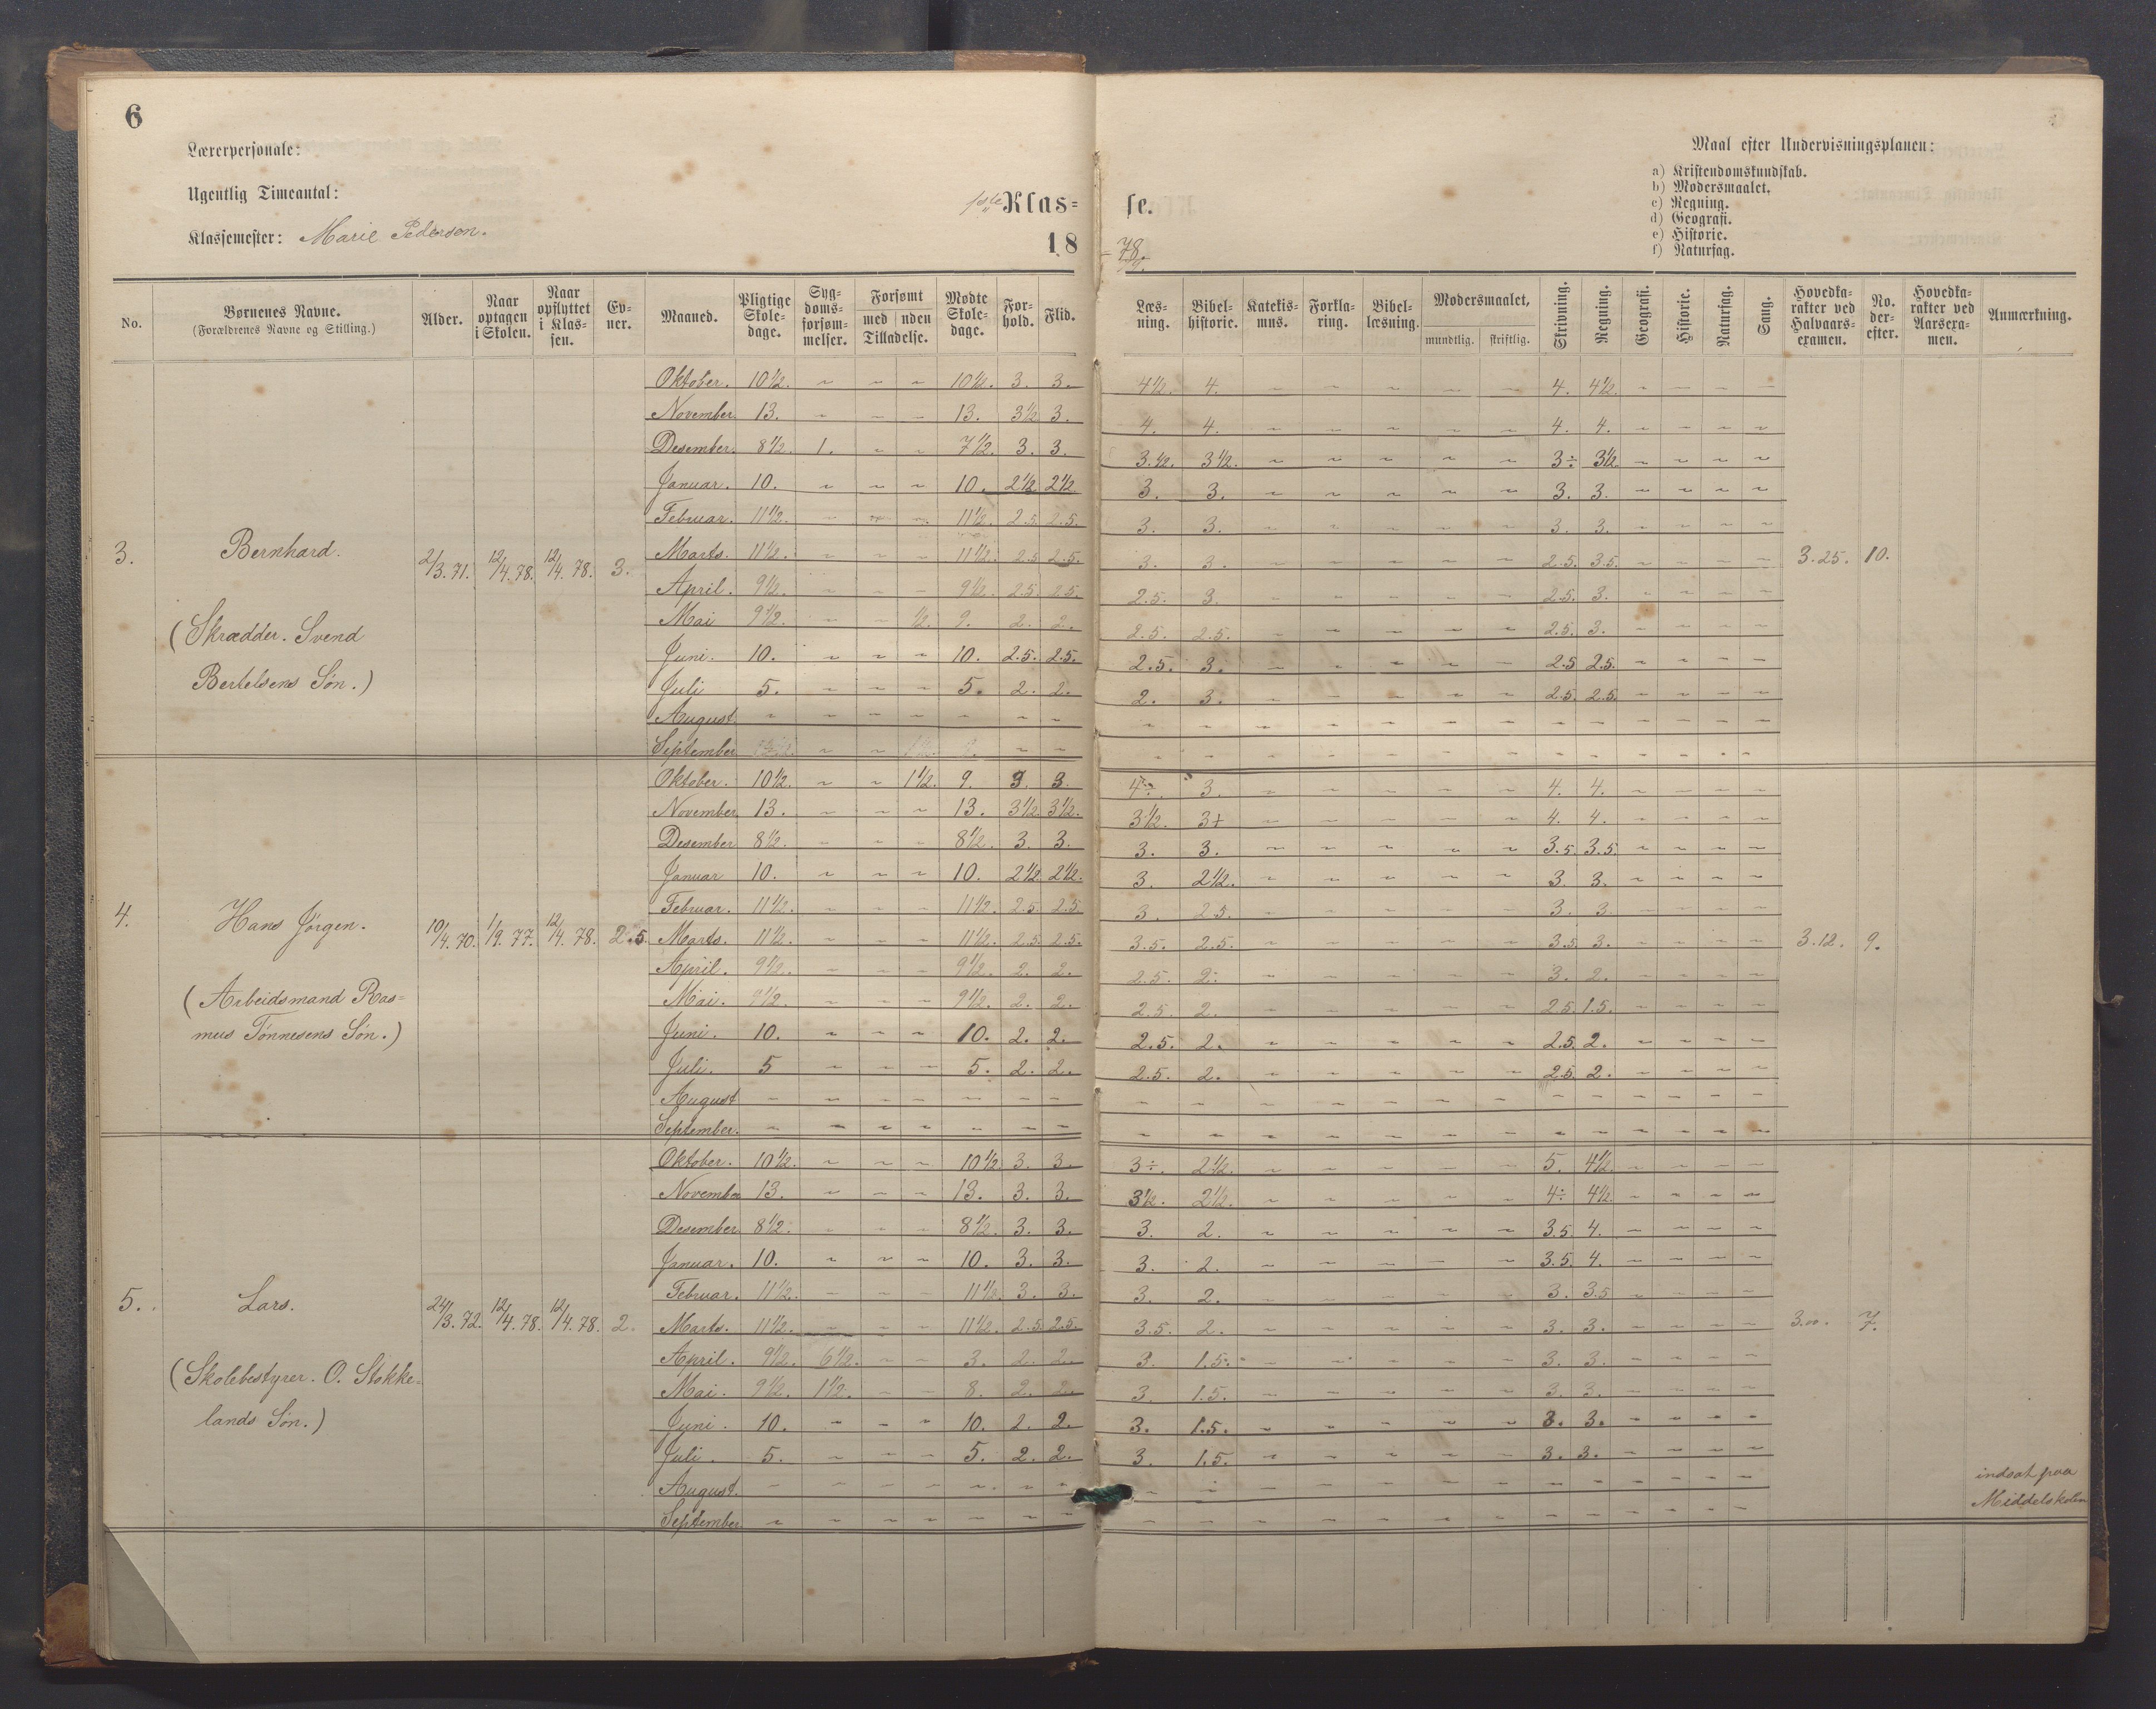 6
Lærerpersonale:
Ugentlig Timeantal:
Klassemester: Marie Pedersen.
1ste Klas=
se.
18
78
Maal efter Undervisningsplanen:
a) Kristendomskundskab.
b) Modersmaalet.
c) Regning.
d) Geografi.
e) Historie.
f) Naturfag.
No. Børnenes Navne. (Forældrenes Navne og Stilling.) Alder. Naar optagen i Skolen. Naar opflyttet i Klas-sen. Ev-ner. Maaned. Pligtige Skole-dage. Syg-doms-forsøm-melser. Forsømt med uden Tilladelse. Mødte Skole-dage. For-hold. Flid. Læs-ning. Bibel-historie. Katekis-mus. Forkla-ring. Bibel-læsning. Modersmaalet, mundtlig. skriftlig. Skrivning. Regning. Geografi. Historie. Naturfag. Sang. Hovedka-rakter ved Halvaars-examen. No. der-efter. Hovedka-rakter ved Aarsexa-men. Anmærkning.
Oktober. 10½. ~ ~ ~ 10½. 3. 3. 4½. 4. ~ ~ ~ ~ ~ 4. 4½. ~ ~ ~ ~
November. 13. ~ ~ ~ 13. 3½ 3. 4. 4. ~ ~ ~ ~ ~ 4. 4. ~ ~ ~ ~
Desember. 8½. 1. ~ ~ 7½. 3. 3. 3.½. 3½. ~ ~ ~ ~ ~ 3÷ 3½ ~ ~ ~ ~
Januar. 10. ~ ~ ~ 10. 2½ 2½ 3. 3. ~ ~ ~ ~ ~ 3. 3. ~ ~ ~ ~
Februar. 11½. ~ ~ ~ 11½. 2.5. 2.5. 3. 3. ~ ~ ~ ~ ~ 3. 3. ~ ~ ~ ~
3. Bernhard. 2/3.71. 12/4.78. 12/4.78. 3. Marts. 11½. ~ ~ ~ 11½. 2.5 2.5. 3. 3. ~ ~ ~ ~ ~ 2.5. 3.5. ~ ~ ~ ~ 3.25. 10.
April. 9½. ~ ~ ~ 9½. 2.5. 2.5. 2.5. 3. ~ ~ ~ ~ ~ 2.5. 3. ~ ~ ~ ~
(Skrædder. Svend Mai 9½. ~ ~ ½. 9. 2. 2. 2.5. 2.5. ~ ~ ~ ~ ~ 2.5. 3. ~ ~ ~ ~
Juni. 10. ~ ~ ~ 10. 2.5. 2.5. 2.5. 3. ~ ~ ~ ~ ~ 2.5 2.5. ~ ~ ~ ~
Bertelsens Søn.) Juli 5. ~ ~ ~ 5. 2. 2. 2. 3. ~ ~ ~ ~ ~ 2.5. 2.5. ~ ~ ~ ~
August. ~ ~ ~ ~ ~ ~ ~ ~ ~ ~ ~ ~ ~ ~ ~ ~ ~ ~ ~ ~
September ~ ~ ~ ~ ~ ~ ~ ~ ~ ~ ~ ~ ~ ~ ~ ~ ~
Oktober. 10½. ~ ~ 1½. 9. 3. 3. 4÷. 3. ~ ~ ~ ~ ~ 4. 4. ~ ~ ~ ~
November 13. ~ ~ ~ 13. 3½. 3½. 3½. 3+ ~ ~ ~ ~ ~ 4. 4. ~ ~ ~ ~
Desember 8½. ~ ~ ~ 8½. 3. 3. 3. 3. ~ ~ ~ ~ ~ 3.5. 3.5. ~ ~ ~ ~
Januar 10. ~ ~ ~ 10. 2½. 2½. 3. 2½. ~ ~ ~ ~ ~ 3. 3. ~ ~ ~ ~
Februar. 11½. ~ ~ ~ 11½. 2.5. 2.5 3. 2.5. ~ ~ ~ ~ ~ 3. 3. ~ ~ ~ ~
4. Hans Jörgen. 10/4.70. 1/9.77. 12/4.78. 2.5. Marts. 11½. ~ ~ ~ 11½. 2.5. 2.5. 3.5. 2.5. ~ ~ ~ ~ ~ 3.5. 3. ~ ~ ~ ~ 3.12. 9.
April. 9½. ~ ~ ~ 9½. 2. 2. 2.5. 2. ~ ~ ~ ~ ~ 3. 2. ~ ~ ~ ~
(Arbeidsmand Ras= Mai. 9½. ~ ~ ~ 9½. 2. 2. 2.5. 2. ~ ~ ~ ~ ~ 2.5. 1.5. ~ ~ ~ ~
mus Tönnesens Sön.) Juni. 10. ~ ~ ~ 10. 2. 2. 2.5. 2. ~ ~ ~ ~ ~ 2.5. 2. ~ ~ ~ ~
Juli. 5 ~ ~ ~ 5. 2. 2. 2.5. 2. ~ ~ ~ ~ ~ 2.5. 2. ~ ~ ~ ~
August ~ ~ ~ ~ ~ ~ ~ ~ ~ ~ ~ ~ ~ ~ ~ ~ ~ ~ ~ ~
September. ~ ~ ~ ~ ~ ~ ~ ~ ~ ~ ~ ~ ~ ~ ~ ~ ~ ~ ~ ~
Oktober. 10½. ~ ~ ~ 10½. 3. 3. 3÷. 2½. ~ ~ ~ ~ ~ 5. 4½. ~ ~ ~ ~
November 13. ~ ~ ~ 13. 3. 3. 3½. 2½. ~ ~ ~ ~ ~ 4÷ 4½. ~ ~ ~ ~
Desember 8½. ~ ~ ~ 8½. 3. 3. 3. 2. ~ ~ ~ ~ ~ 3.5. 4. ~ ~ ~ ~
Januar. 10. ~ ~ ~ 10. 3. 3. 3. 2. ~ ~ ~ ~ ~ 3.5. 4. ~ ~ ~ ~
Februar. 11½. ~ ~ ~ 11½. 3. 3. 3. 2. ~ ~ ~ ~ ~ 3. 3.5 ~ ~ ~ ~
5. Lars. 24/3.72. 12/4.78. 12/4.78. 2. Marts. 11½. ~ ~ ~ 11½. 2.5. 2.5. 3.5. 2. ~ ~ ~ ~ ~ 3. 3. ~ ~ ~ ~ 3.00. 7.
April. 9½. 6½. ~ ~ 3. 2. 2. 3. 1.5. ~ ~ ~ ~ ~ 3. 3. ~ ~ ~ ~
(Skolebestyrer. O. Stokke= Mai. 9½. 1½. ~ ~ 8. 2. 2. 3. 1.5. ~ ~ ~ ~ ~ 3. 3. ~ ~ ~ ~
lands Sön.) Juni. 10. ~ ~ ~ 10. 2. 2. 3. 1.5. ~ ~ ~ ~ ~ 3. 3. ~ ~ ~ ~
Juli. 5. ~ ~ ~ 5. 2. 2. 3. 1.5. ~ ~ ~ ~ ~ 3. 3. ~ ~ ~ ~
August. ~ ~ ~ ~ ~ ~ ~ ~ ~ ~ ~ ~ ~ ~ ~ ~ ~ ~ ~ ~ indsat paa
September ~ ~ ~ ~ ~ ~ ~ ~ ~ ~ ~ ~ ~ ~ ~ ~ ~ ~ ~ ~ Middelskolen